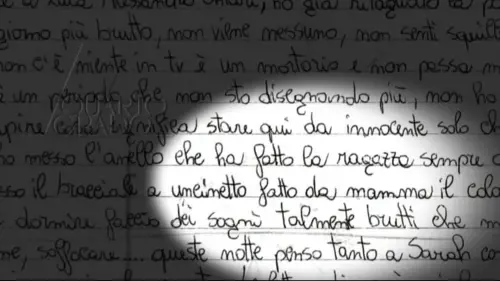 giorno più brutto, non viene nessuno, non senti squill
non c'è niente in tv è un mortorio e non passa m
è un periodo che non sto disegnando più, non ho
pire cosa significa stare qui da innocente solo ch
o messo l'anello che ha fatto la ragazza sempre
sso il bracciale a uncinetto fatto da mamma il cola
dormire faccio dei sogni talmente brutti che m
ne, soffocare.... queste notte penso tanto a Sarah co